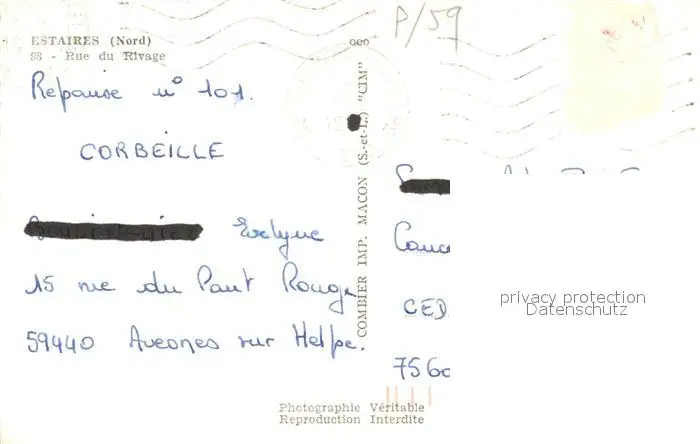 P/59
ESTAIRES (Nord)
98 - Rue du Rivage
Reponse n° 101.
CORBEILLE
Evelyne
15 rue du Pont Rouge
59440 Avesnes sur Helpe.
COMBIER IMP. MACON (S.-et-L.) "CIM"
CED
privacy protection
Datenschutz
Photographie Véritable
Reproduction Interdite